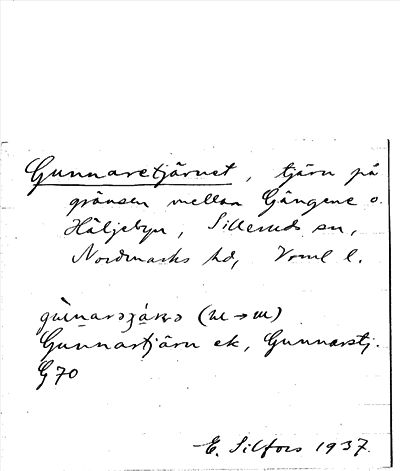 Gunnaretjärnet, tjärn på
gränsen mellan Gängene o.
Häljebyn, Silleruds sn,
Nordmarks hd, Vrml l.
Gunnartjärn ek, Gunnarstj.
G 70
E. Silfors 1937.